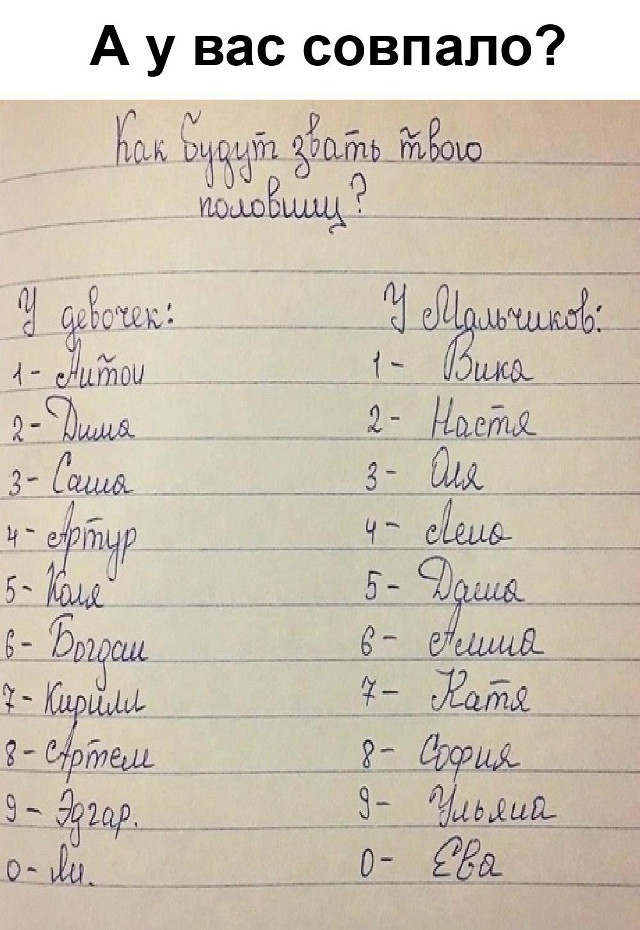 А у вас совпало?
Как будут звать твою
половину?
У девочек:
1 - Антон
2 - Дима
3 - Саша
4 - Артур
5 - Коля
6 - Богдан
7 - Кирилл
8 - Артем
9 - Эдгар.
0 - Ли.
У Мальчиков:
1 - Вика
2 - Настя
3 - Оля
4 - Лена
5 - Даша
6 - Алина
7 - Катя
8 - София
9 - Ульяна
0 - Ева